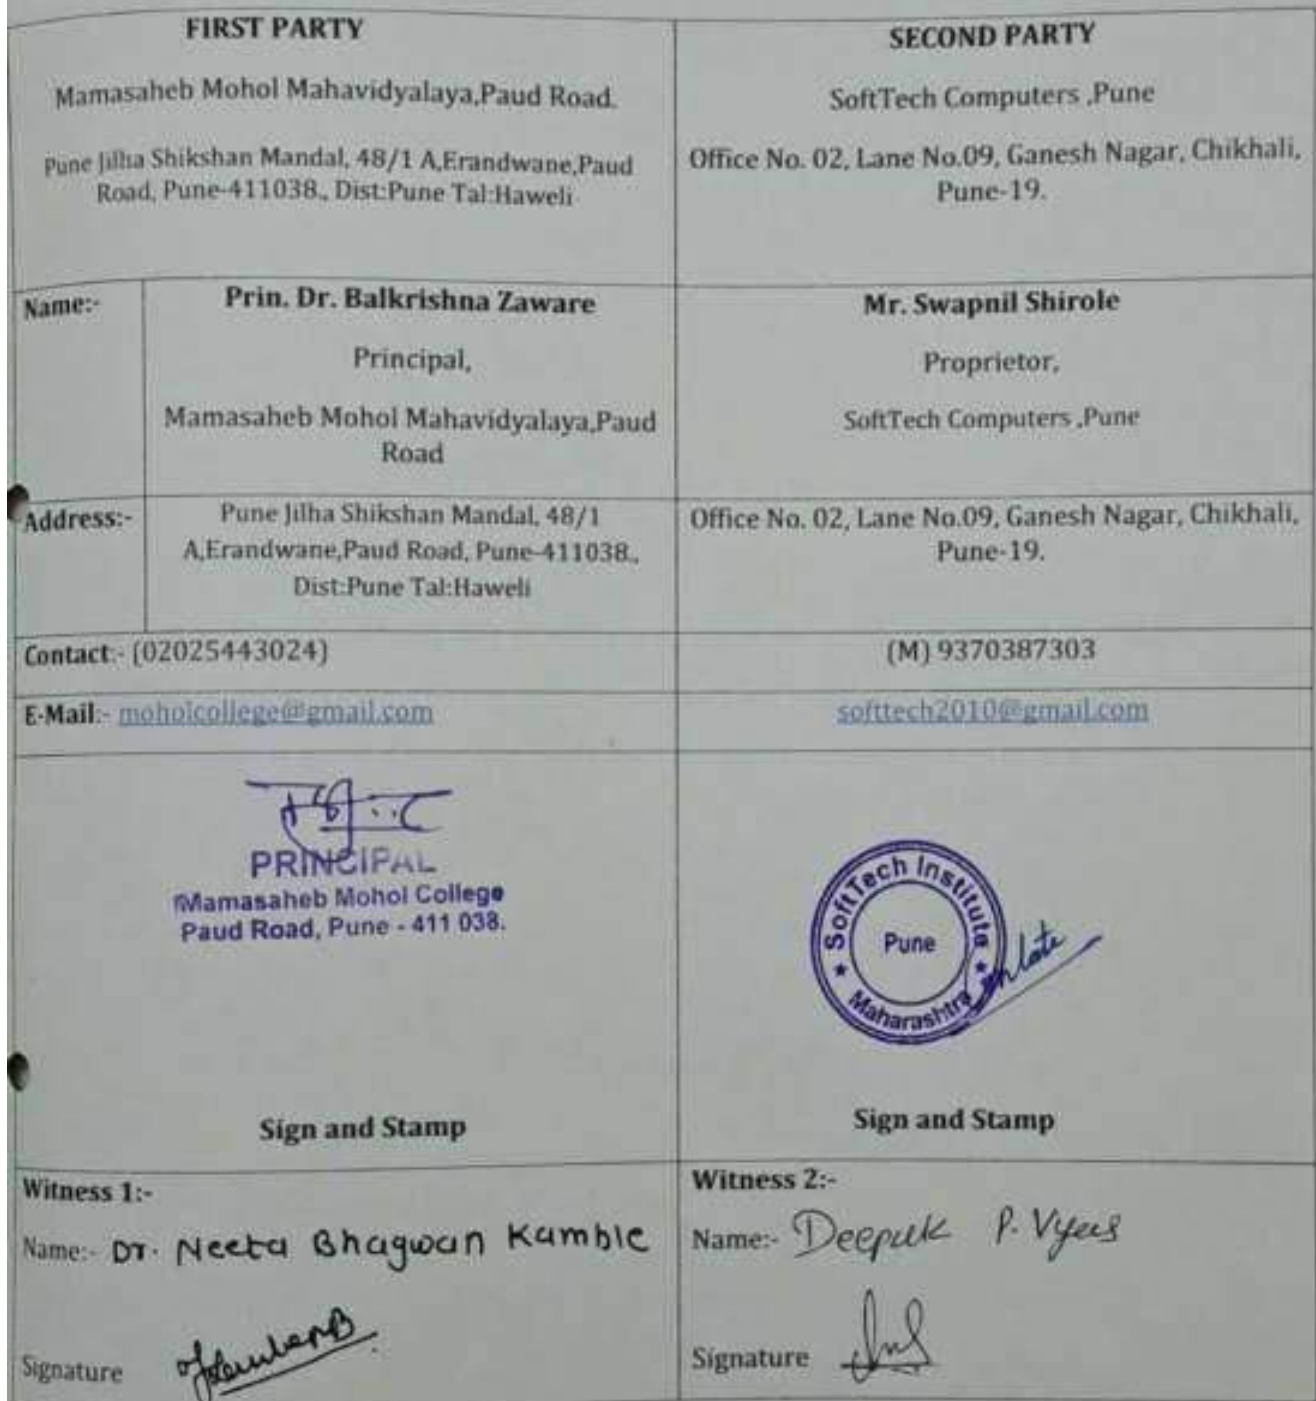 FIRST PARTY
Mamasaheb Mohol Mahavidyalaya,Paud Road.
Pune Jilha Shikshan Mandal, 48/1 A,Erandwane,Paud
Road, Pune-411038., Dist:Pune Tal:Haweli
SECOND PARTY
SoftTech Computers ,Pune
Office No. 02, Lane No.09, Ganesh Nagar, Chikhali,
Pune-19.
Name:-
Prin. Dr. Balkrishna Zaware
Principal,
Mamasaheb Mohol Mahavidyalaya,Paud
Road
Mr. Swapnil Shirole
Proprietor,
SoftTech Computers ,Pune
Address:-
Pune Jilha Shikshan Mandal, 48/1
A,Erandwane,Paud Road, Pune-411038.,
Dist:Pune Tal:Haweli
Office No. 02, Lane No.09, Ganesh Nagar, Chikhali,
Pune-19.
Contact:- (02025443024)
(M) 9370387303
E-Mail:- moholcollege@gmail.com
softtech2010@gmail.com
PRINCIPAL
Mamasaheb Mohol College
Paud Road, Pune - 411 038.
Sign and Stamp
SoftTech Institute
Pune
Maharashtra
Sign and Stamp
Witness 1:-
Name:- Dr. Neeta Bhagwan Kamble
Signature
Witness 2:-
Name:- Deepak P. Vyas
Signature